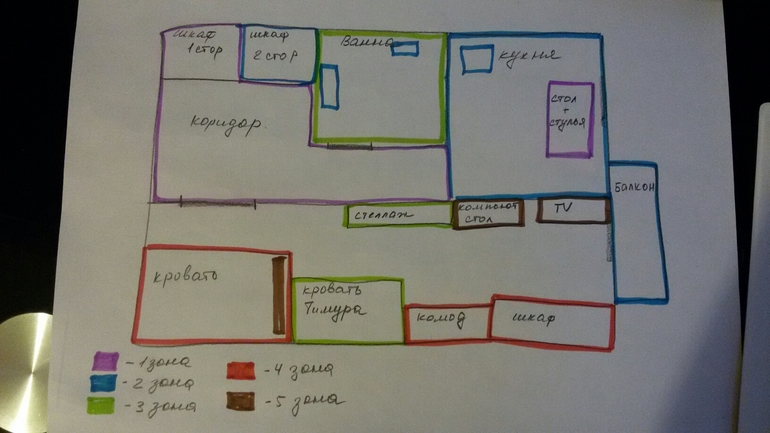 шкаф
1стор
шкаф
2 стор
Ванна
кухня
стол
+
стулья
коридор
Балкон
стеллаж
компьют
стол
TV
кровать
кровать
Тимура
комод
шкаф
- 1 зона
- 2 зона
- 3 зона
- 4 зона
- 5 зона